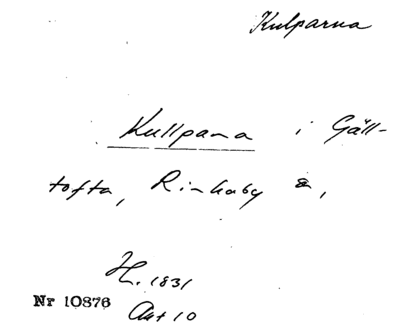 Kulparna
Kullpana i Gäll-
tofta, Rinkaby s,
H. 1831
Nr 10876
Akt 10